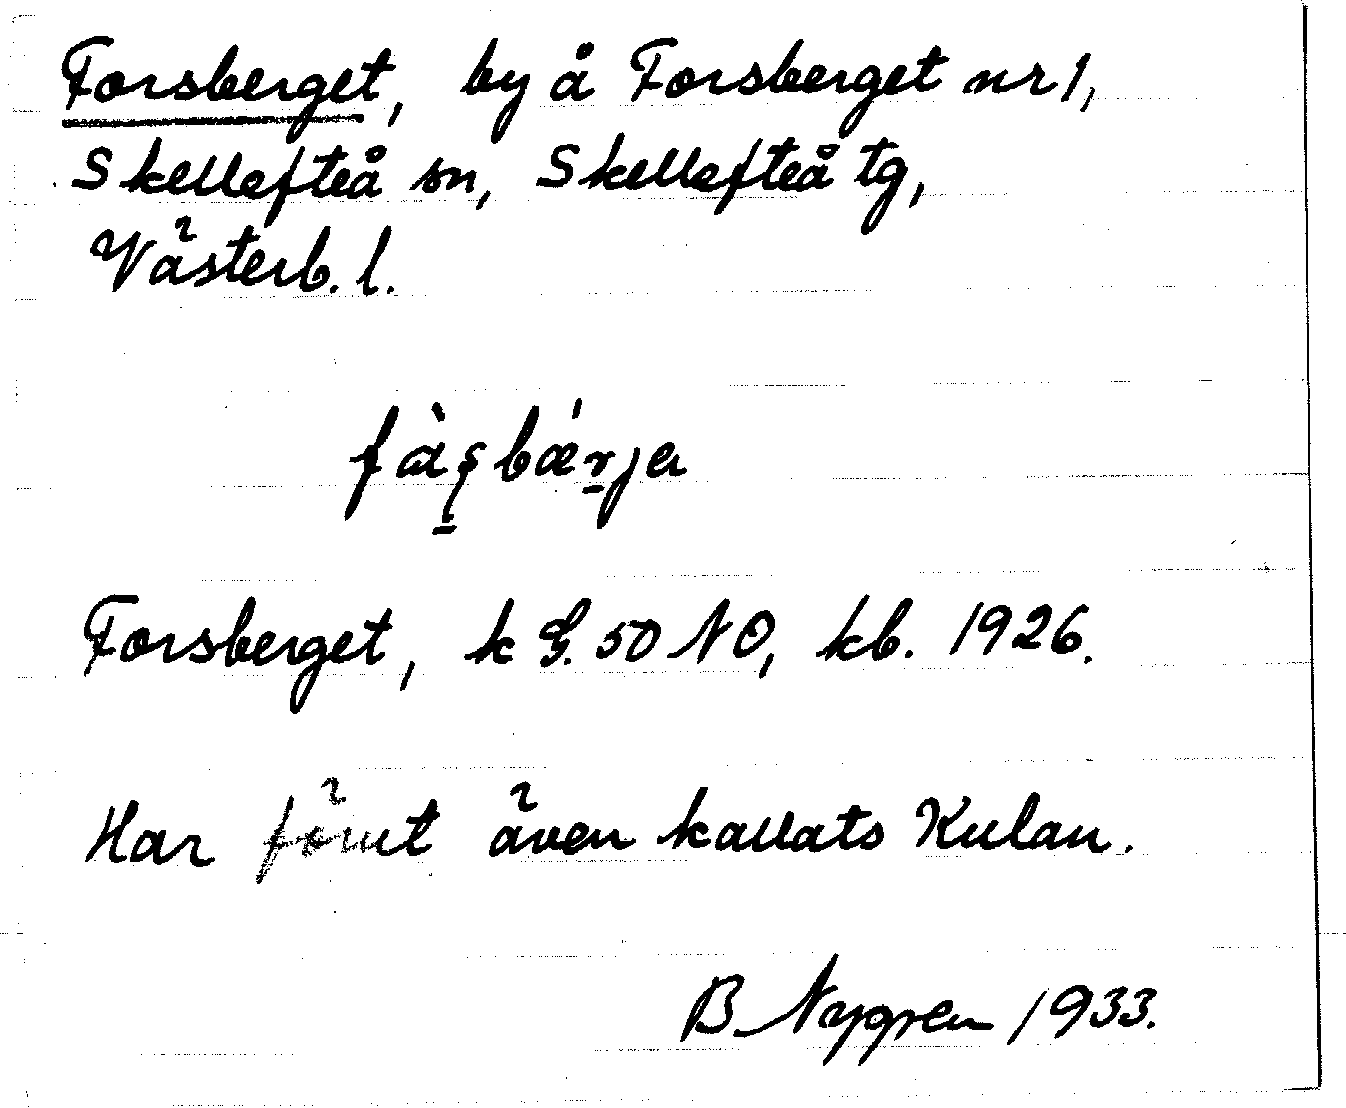 Forsberget, by å Forsberget nr 1,
Skellefteå sn, Skellefteå tg,
Västerb. l.
Forsberget, k G. 50 NO, kb. 1926.
Har förut även kallats Kulan.
B Nygren 1933.